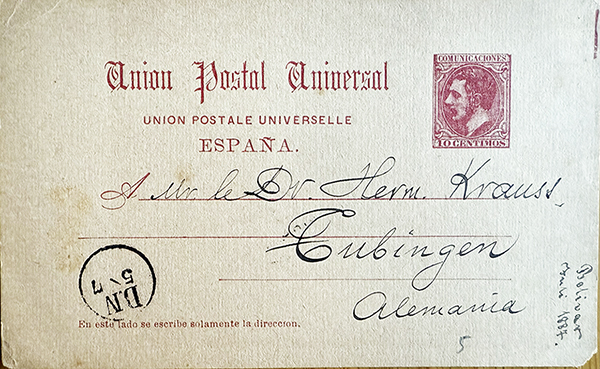 COMUNICACIONES
Union Postal Universal
10 CENTIMOS
UNION POSTALE UNIVERSELLE
ESPAÑA.
A Mr. le Dr. Herm. Krauss
Tübingen
Alemania
B.IV
5 7
En este lado se escribe solamente la direccion.
5
Bolivar
1887.